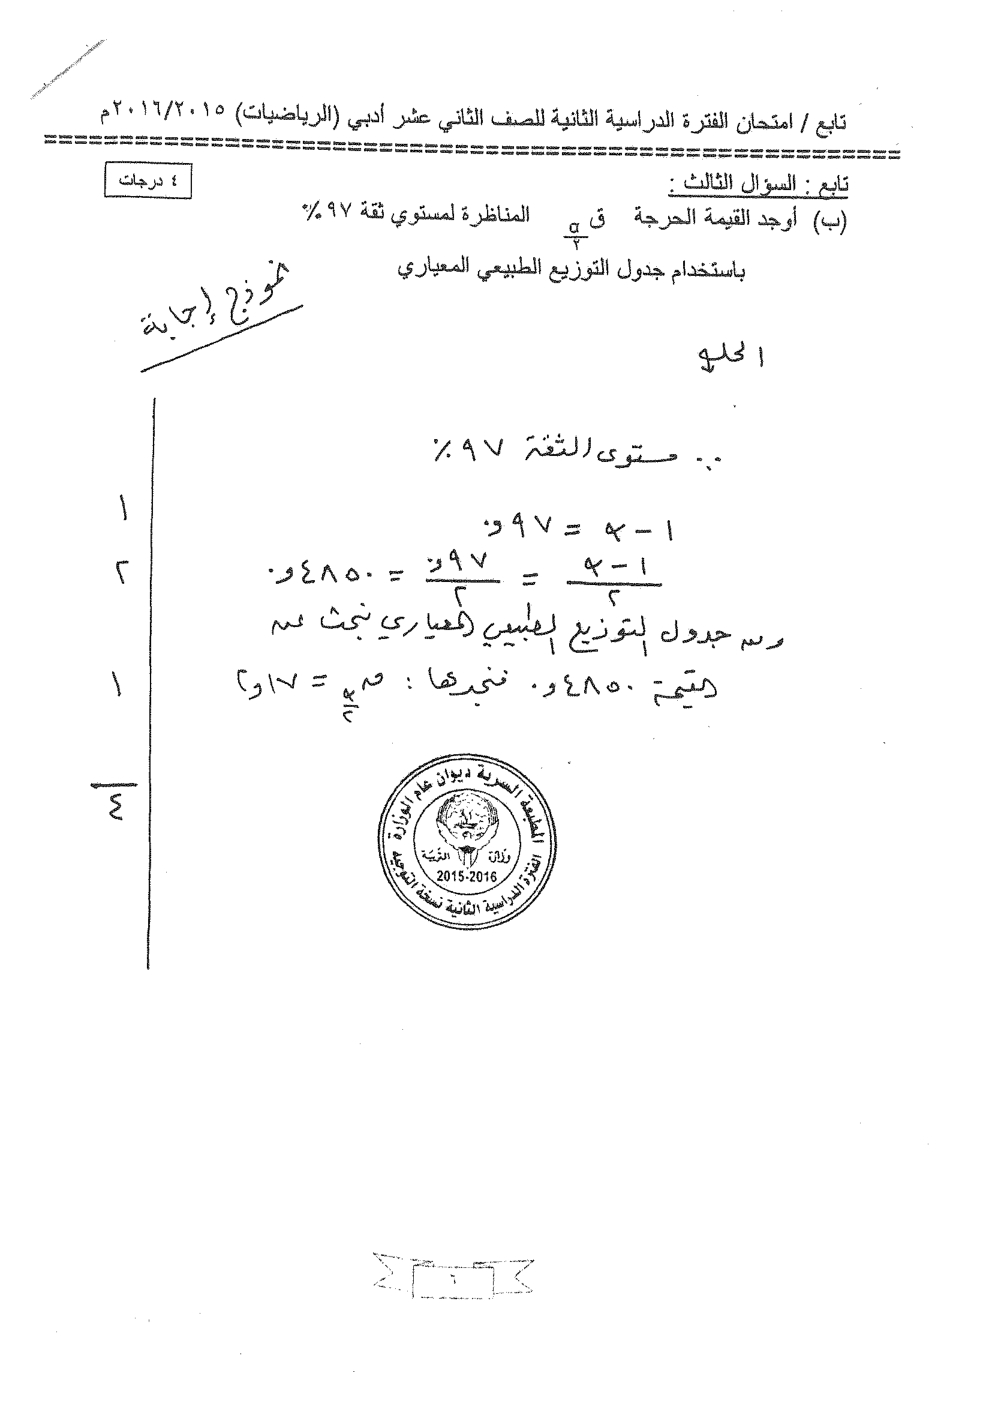 تابع / امتحان الفترة الدراسية الثانية للصف الثاني عشر أدبي (الرياضيات) ٢٠١٦/٢٠١٥م
تابع : السؤال الثالث :
٤ درجات
(ب) أوجد القيمة الحرجة ق α/٢ المناظرة لمستوي ثقة ٩٧٪
باستخدام جدول التوزيع الطبيعي المعياري
نموذج إجابة
الحل
∵ مستوى الثقة ٩٧٪
١ - α = ٠,٩٧
١
(١ - α)/٢ = ٠,٩٧/٢ = ٠,٤٨٥٠
٢
ومن جدول التوزيع الطبيعي المعياري نبحث عن
القيمة ٠,٤٨٥٠ فنجدها : ق α/٢ = ٢,١٧
١
٤
المطبعة السرية ديوان عام الوزارة
وزارة التربية
2015-2016
الفترة الدراسية الثانية نسخة التوجيه
٦